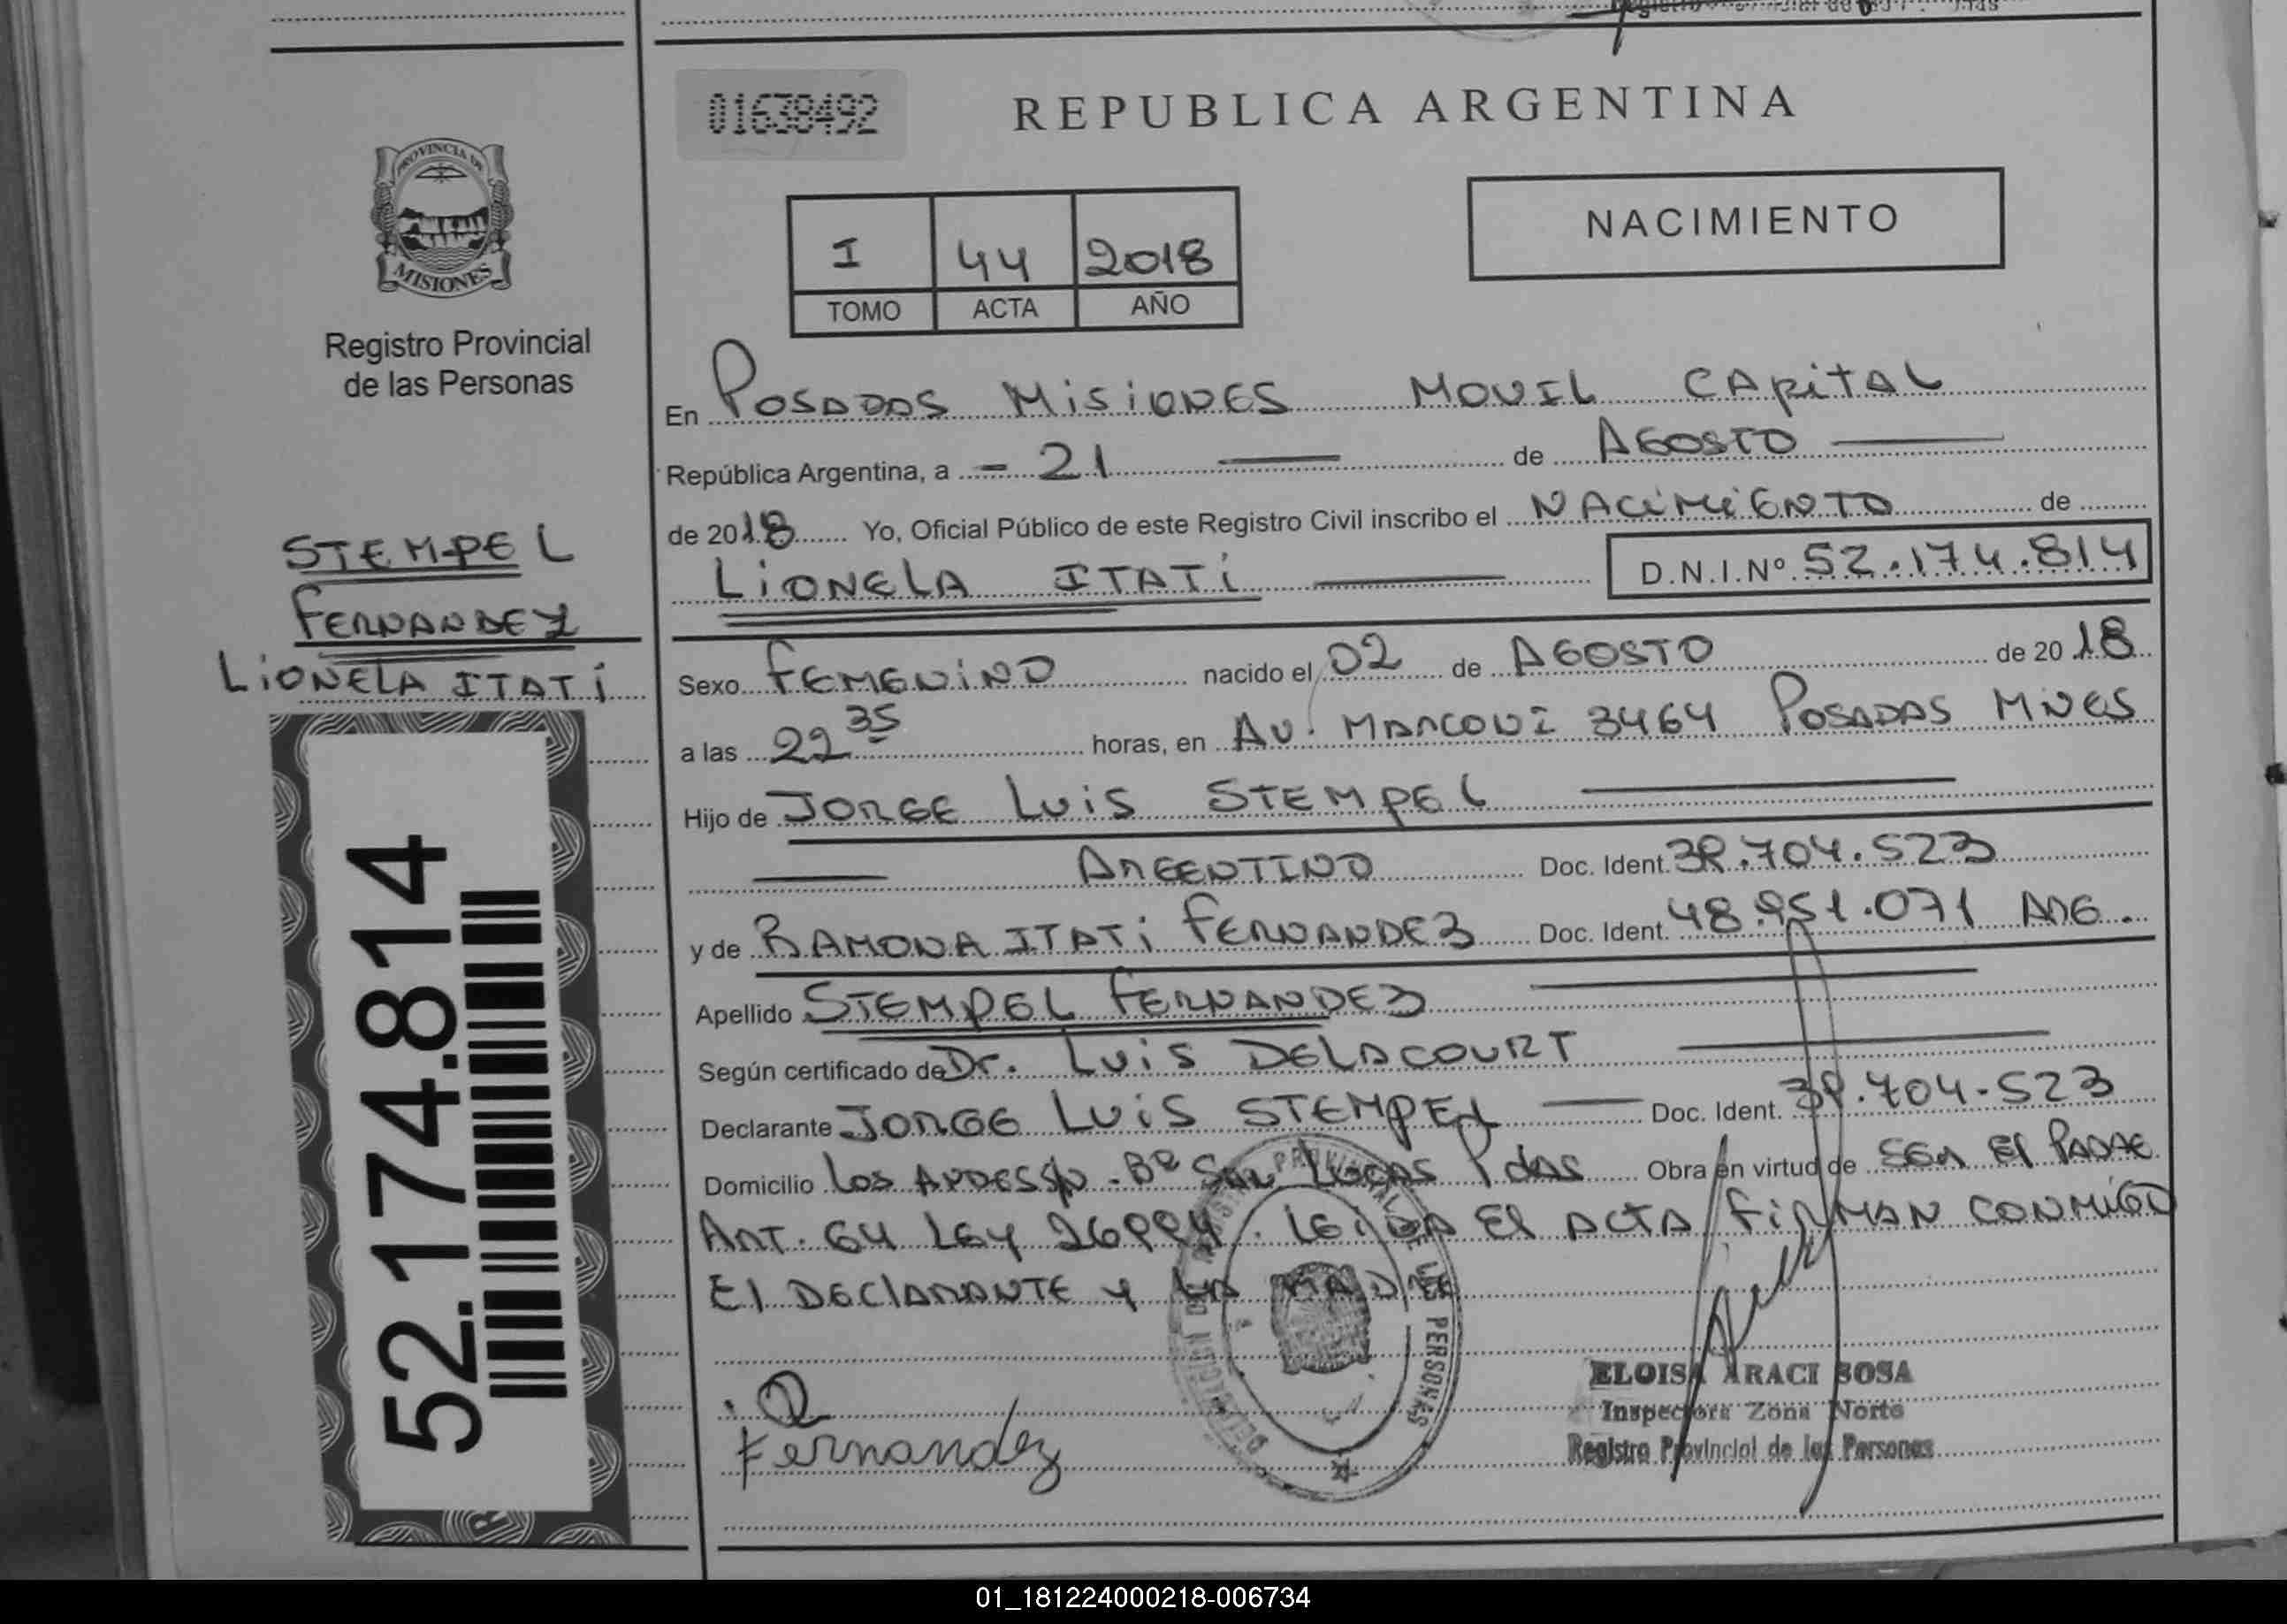 01638492
REPUBLICA ARGENTINA
PROVINCIA DE
MISIONES
Registro Provincial
de las Personas
NACIMIENTO
I 44 2018
TOMO ACTA AÑO
En POSADAS MISIONES MOVIL CAPITAL
República Argentina, a - 21 de AGOSTO
de 2018 Yo, Oficial Público de este Registro Civil inscribo el NACIMIENTO de
LIONELA ITATI D.N.I.Nº 52.174.814
STEMPEL
FERNANDEZ
LIONELA ITATI
Sexo FEMENINO nacido el 02 de AGOSTO de 2018
a las 22 35 horas, en AV. MARCONI 3464 POSADAS MNES
Hijo de JORGE LUIS STEMPEL
ARGENTINO Doc. Ident. .704.523
y de RAMONA ITATI FERNANDEZ Doc. Ident. 48.951.071 ARG.
Apellido STEMPEL FERNANDEZ
Según certificado de Dr. LUIS DELACOURT
Declarante JORGE LUIS STEMPEL Doc. Ident. .704.523
Domicilio LOS ANDES S/N. Bº SAN LUCAS Pdas Obra en virtud de SER El PADRE
ART. 64 LEY 26994. LEIDA El ACTA FIRMAN CONMIGO
El DEClARANTE Y LA MADRE
Fernandez
52.174.814
PROVINCIAL DE LAS PERSONAS
ELOISA ARACI SOSA
Inspectora Zona Norte
Registro Provincial de las Personas
01_181224000218-006734